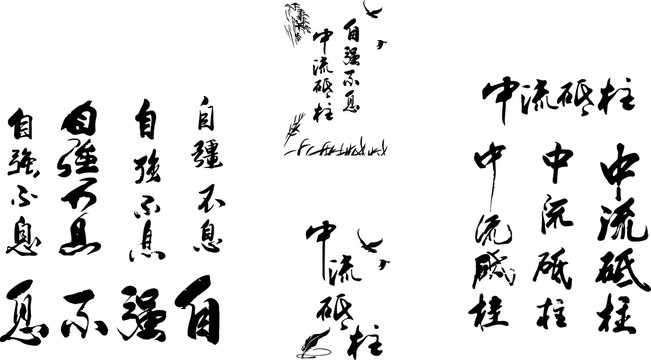 自强不息
自強不息
自強不息
自疆不息
自强不息
自强不息
中流砥柱
中流砥柱
中流砥柱
中流砥柱
中流砥柱
中流砥柱